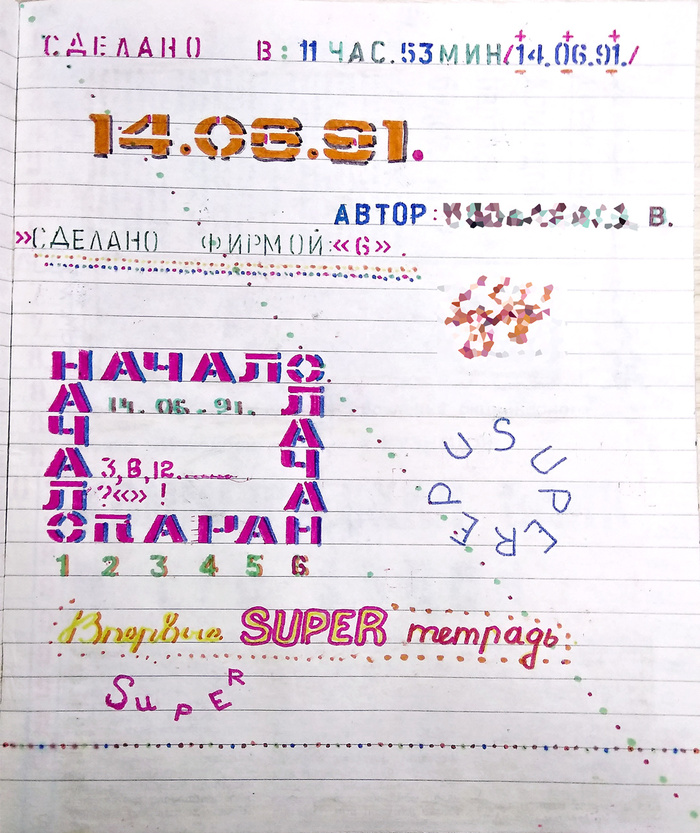 СДЕЛАНО В: 11 ЧАС. 53 МИН /14.06.91./
14.06.91.
АВТОР: В.
»СДЕЛАНО ФИРМОЙ: «6».
НАЧАЛО
А 14.06.91. Л
Ч А
А 3,В,12. Ч
Л ?«»! А
ОПАРАН
1 2 3 4 5 6
SUPER SUPER
Впервые SUPER тетрадь.
SuPER